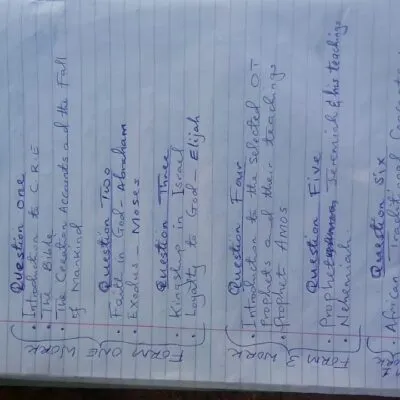 Question One
• Introduction to C.R.E
• The Bible
• The Creation Accounts and the Fall
of Mankind
FORM ONE WORK
Question Two
• Faith in God - Abraham
• Exodus - Moses
Question Three
• Kingship in Israel
• Loyalty to God - Elijah
Question Four
• Introduction to the Selected OT
Prophets and their teachings
• Prophet Amos
FORM WORK
Question Five
• Prophet Jeremiah & his teachings
• Nehemiah
Question Six
• African